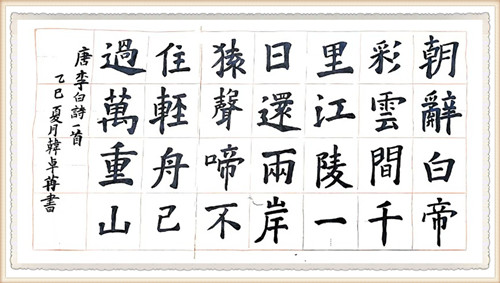 朝辭白帝
彩雲間千
里江陵一
日還兩岸
猿聲啼不
住輕舟已
過萬重山
唐李白詩一首
乙巳夏月韓卓書